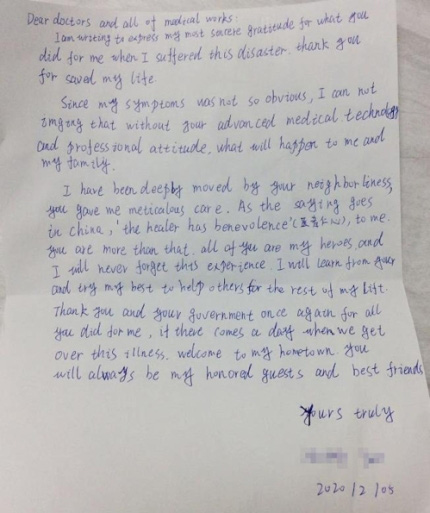 Dear doctors and all of medical works:
I am writing to express my most sincere gratitude for what you
did for me when I suffered this disaster. thank you
for saved my life.
Since my symptoms was not so obvious, I can not
imging that without your advanced medical technology
and professional attitude, what will happen to me and
my family.
I have been deeply moved by your neighborliness,
you gave me meticalous care. As the saying goes
in china, 'the healer has benevolence' (医者仁心), to me.
you are more than that. all of you are my heroes, and
I will never forget this experience. I will learn from your
and try my best to help others for the rest of my life.
Thank you and your government once again for all
you did for me, if there comes a day when we get
over this illness, welcome to my hometown. you
will always be my honored guests and best friends
yours truly
2020/2/05